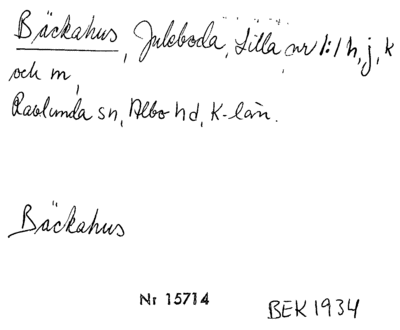 Bäckahus, Juleboda, Lilla nr 1:1 h, j, k
och m,
Ravlunda sn, Albo hd, K-län.
Bäckahus
Nr 15714
BEK 1934